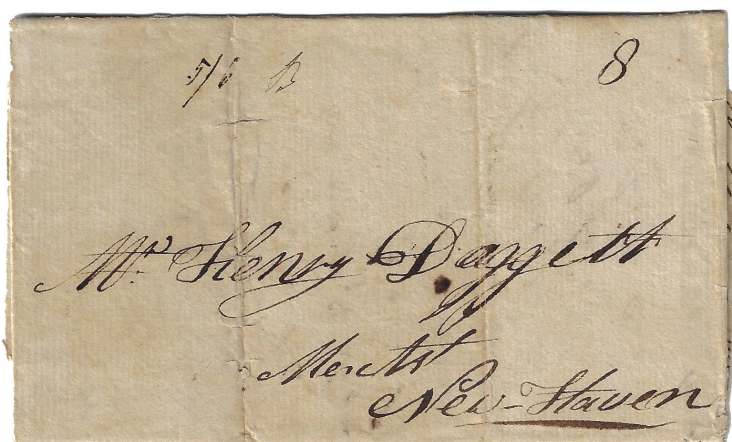 8
Mr. Henry Daggett
Mercht
New-Haven